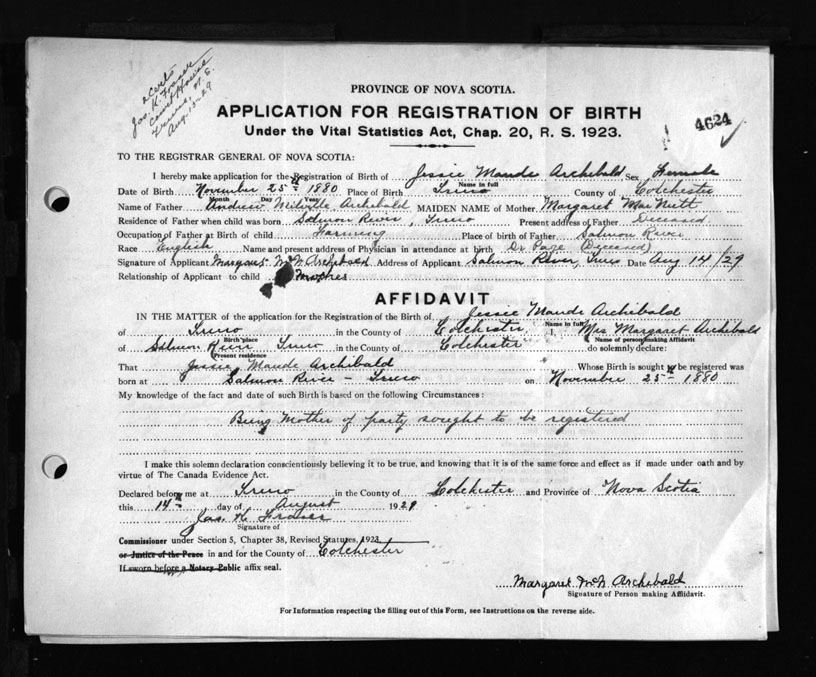 2 Certs
Jas. K. Fraser
Court House
Truro, N.S.
Aug. 13-29
4624
PROVINCE OF NOVA SCOTIA.
APPLICATION FOR REGISTRATION OF BIRTH
Under the Vital Statistics Act, Chap. 20, R. S. 1923.
TO THE REGISTRAR GENERAL OF NOVA SCOTIA:
I hereby make application for the Registration of Birth of Jessie Maude Archibald Sex Female
Name in full
Date of Birth November 25th 1880 Place of Birth Truro County of Colchester
Month Day Year
Name of Father Andrew Melville Archibald MAIDEN NAME of Mother Margaret MacNutt
Residence of Father when child was born Salmon River, Truro Present address of Father Deceased
Occupation of Father at Birth of child Farming Place of birth of Father Salmon River
Race English Name and present address of Physician in attendance at birth Dr. Page (Deceased)
Signature of Applicant Margaret McN Archibald Address of Applicant Salmon River, Truro Date Aug 14/29
Relationship of Applicant to child Mother
AFFIDAVIT
IN THE MATTER of the application for the Registration of the Birth of Jessie Maude Archibald
Name in full
of Truro in the County of Colchester I, Mrs Margaret Archibald
Birth place Name of person making Affidavit
of Salmon River Truro in the County of Colchester do solemnly declare:
Present residence
That Jessie Maude Archibald Whose Birth is sought to be registered was
born at Salmon River - Truro on November 25th 1880
My knowledge of the fact and date of such Birth is based on the following Circumstances:
Being Mother of party sought to be registered
I make this solemn declaration conscientiously believing it to be true, and knowing that it is of the same force and effect as if made under oath and by
virtue of The Canada Evidence Act.
Declared before me at Truro in the County of Colchester and Province of Nova Scotia
this 14th day of August 1929
Jas. K. Fraser
Signature of
Commissioner under Section 5, Chapter 38, Revised Statutes, 1923
or Justice of the Peace in and for the County of Colchester
If sworn before a Notary Public affix seal.
Margaret McN Archibald
Signature of Person making Affidavit.
For Information respecting the filling out of this Form, see Instructions on the reverse side.